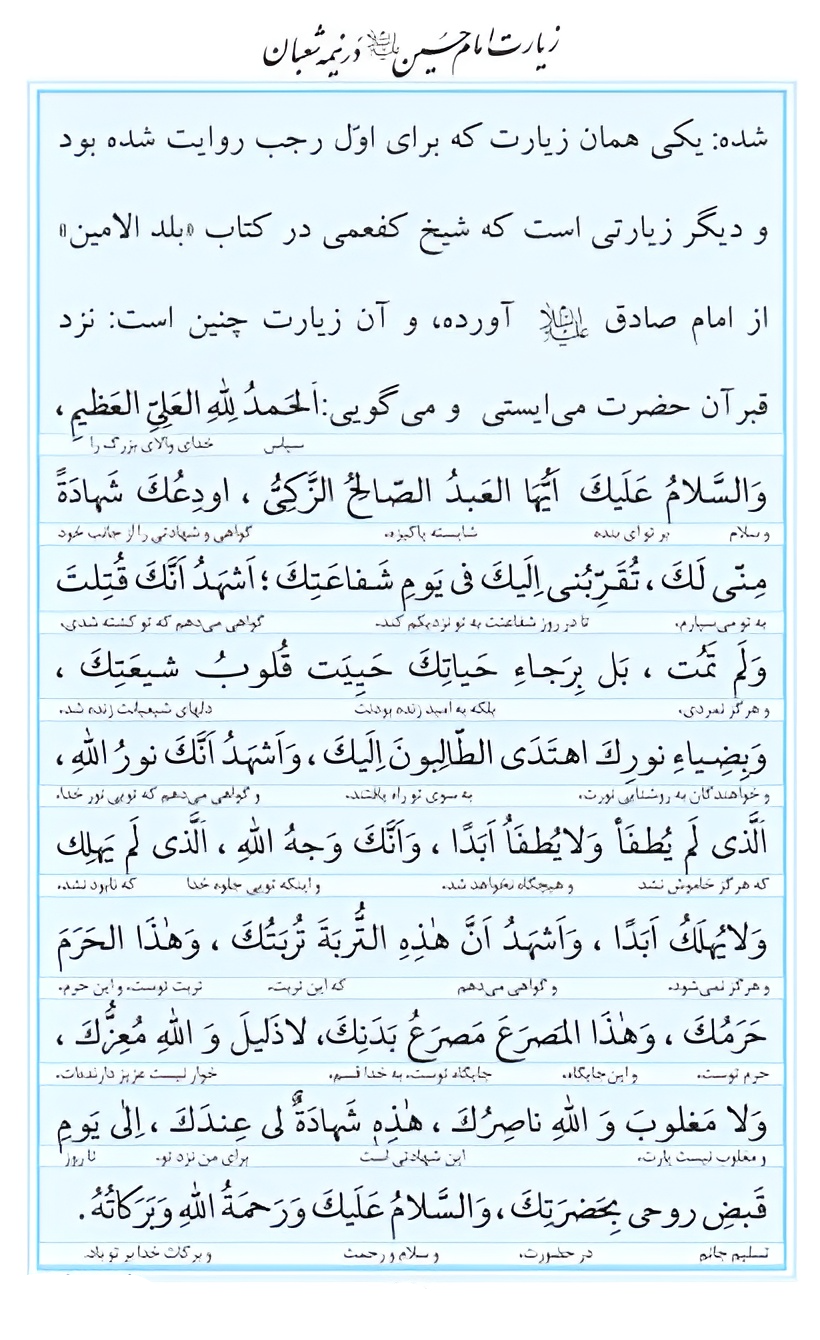 زیارت امام حسین علیه‌السلام در نیمه شعبان
شده: یکی همان زیارت که برای اوّل رجب روایت شده بود
و دیگر زیارتی است که شیخ کفعمی در کتاب «بلد الامین»
از امام صادق علیه‌السلام آورده، و آن زیارت چنین است: نزد
قبر آن حضرت می‌ایستی و می‌گویی: اَلحَمدُ لِلّٰهِ العَلِیِّ العَظیمِ ،
سپاس خدای والای بزرگ را
وَالسَّلامُ عَلَیكَ اَیُّهَا العَبدُ الصّالِحُ الزَّكِیُّ ، اودِعُكَ شَهادَةً
و سلام بر تو ای بنده شایسته پاکیزه، گواهی و شهادتی را از جانب خود
مِنّی لَكَ ، تُقَرِّبُنی اِلَیكَ فی یَومِ شَفاعَتِكَ ؛ اَشهَدُ اَنَّكَ قُتِلتَ
به تو می‌سپارم، تا در روز شفاعتت به تو نزدیکم کند، گواهی می‌دهم که تو کشته شدی،
وَلَم تَمُت ، بَل بِرَجاءِ حَیاتِكَ حَیِیَت قُلوبُ شیعَتِكَ ،
و هرگز نمردی، بلکه به امید زنده بودنت دلهای شیعیانت زنده شد،
وَبِضِیاءِ نورِكَ اهتَدَی الطّالِبونَ اِلَیكَ ، وَاَشهَدُ اَنَّكَ نورُ اللهِ ،
و خواهندگان به روشنایی نورت، به سوی تو راه یافتند، و گواهی می‌دهم که تویی نور خدا،
اَلَّذی لَم یُطفَأ وَلایُطفَأُ اَبَدًا ، وَاَنَّكَ وَجهُ اللهِ ، اَلَّذی لَم یَهلِك
که هرگز خاموش نشد و هیچگاه نخواهد شد، و اینکه تویی جلوه خدا که نابود نشد،
وَلایُهلَكُ اَبَدًا ، وَاَشهَدُ اَنَّ هٰذِهِ التُّربَةَ تُربَتُكَ ، وَهٰذَا الحَرَمَ
و هرگز نمی‌شود، و گواهی می‌دهم که این تربت، تربت توست، و این حرم،
حَرَمُكَ ، وَهٰذَا المَصرَعَ مَصرَعُ بَدَنِكَ، لاذَلیلَ وَ اللهِ مُعِزُّكَ ،
حرم توست، و این جایگاه، جایگاه توست، به خدا قسم، خوار نیست عزیز دارنده‌ات،
وَلا مَغلوبَ وَ اللهِ ناصِرُكَ ، هٰذِهِ شَهادَةٌ لی عِندَكَ ، اِلیٰ یَومِ
و مغلوب نیست یارت، این شهادتی است برای من نزد تو، تا روز
قَبضِ روحی بِحَضرَتِكَ ، وَالسَّلامُ عَلَیكَ وَرَحمَةُ اللهِ وَبَرَكاتُهُ .
تسلیم جانم در حضورت، و سلام و رحمت و برکات خدا بر تو باد.